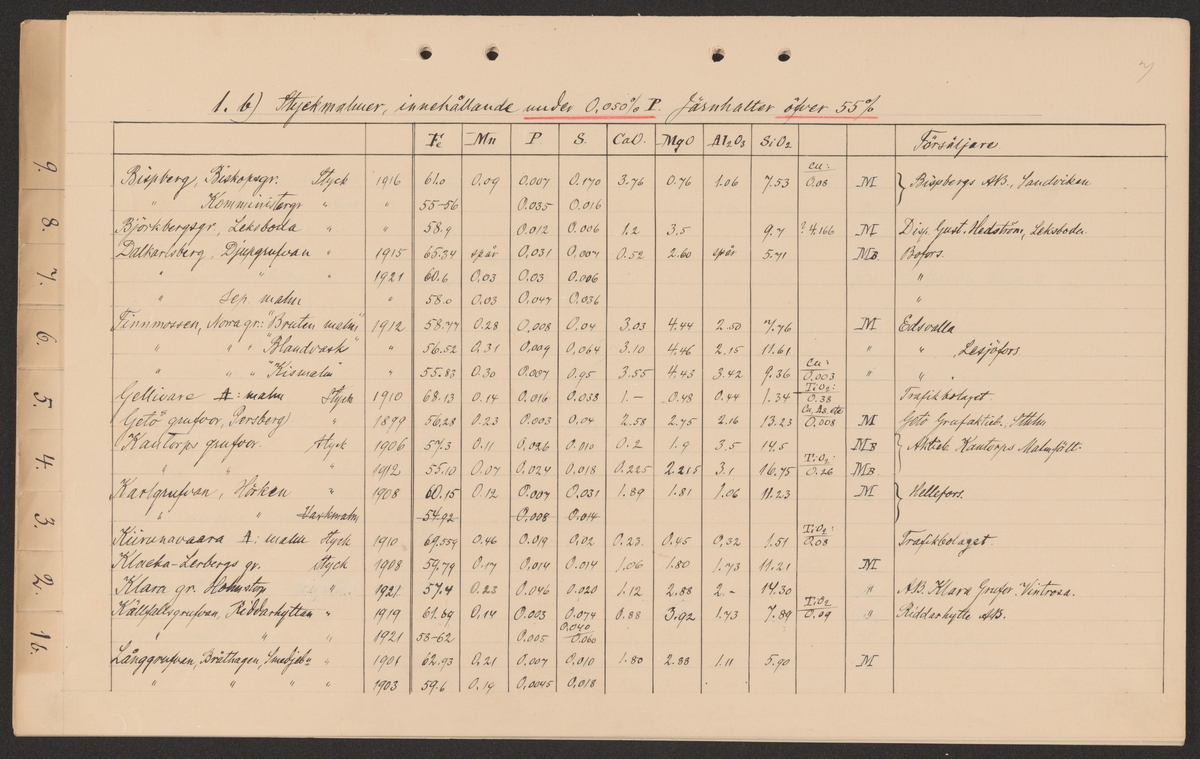 1. b) Styckmalmer, innehållande under 0.050% P. Järnhalter öfver 55%
Fe Mn P S. CaO. MgO Al2O3 SiO2 Försäljare
Bispberg, Biskopsgr. Styck 1916 61.0 0.09 0.007 0.170 3.76 0.76 1.06 7.53 Cu: 0.08 M Bispbergs AB., Sandviken
" Komministergr " " 55-56 0.035 0.016
Björkbergsgr., Leksboda " " 58.9 0.012 0.006 1.2 3.5 9.7 ? 4.166 M Disp. Gust. Hedström, Leksboda
Dalkarlsberg, Djupgrufvan " 1915 65.34 spår 0.031 0.007 0.52 2.60 spår 5.71 MB. Bofors.
" " " 1921 60.6 0.03 0.03 0.006 "
" Sep. malm " 58.0 0.03 0.047 0.036 "
Finnmossen, Norra gr.: "Bruten malm" 1912 58.77 0.28 0.008 0.04 3.03 4.44 2.50 7.76 M Edsvalla
" " " "Blandvask" " 56.52 0.31 0.009 0.064 3.10 4.46 2.15 11.61 " " Lesjöfors
" " "Kismalm" " 55.83 0.30 0.007 0.95 3.55 4.43 3.42 9.36 Cu: 0.003 " " "
Gellivare A: malm Styck 1910 68.13 0.14 0.016 0.038 1.- 0.48 0.44 1.34 TiO2: 0.38 Trafikbolaget
Getö grufvor, Persberg " 1899 56.28 0.23 0.003 0.04 2.58 2.75 2.16 13.23 Cu, As. etc 0.008 M Getö Grufaktieb., Sthlm
Kantorps grufvor. Styck 1906 57.3 0.11 0.026 0.010 0.2 1.9 3.5 14.5 MB Aktieb. Kantorps Malmfält.
" " " 1912 55.10 0.07 0.024 0.018 0.225 2.215 3.1 16.75 TiO2: 0.26 MB.
Karlgrufvan, Hörken " 1908 60.15 0.12 0.007 0.031 1.89 1.81 1.06 11.23 M Hellefors.
" " Varkmalm 54.92 0.008 0.014
Kiirunavaara A: malm Styck 1910 69.554 0.46 0.019 0.02 0.23 0.45 0.32 1.51 TiO2: 0.08 Trafikbolaget
Klacka-Lerbergs gr. Styck 1908 59.79 0.17 0.014 0.014 1.06 1.80 1.73 11.21 M
Klara gr. 1921 57.4 0.23 0.046 0.020 1.12 2.88 2.- 14.30 " AB. Klara Gruvor. Vintrosa.
Källfallsgrufvan, Riddarhyttan " 1919 61.69 0.14 0.003 0.074 0.88 3.92 1.73 7.89 TiO2 0.09 " Riddarhytte AB.
" " " 1921 58-62 0.005 0.040 0.060
Långgrufvan, Bråthagen, Smedjeb. " 1901 62.93 0.21 0.007 0.010 1.80 2.88 1.11 5.90 M
" " " " 1903 59.6 0.19 0.0045 0.018
9.
8.
7.
6.
5.
4.
3.
2.
1b.